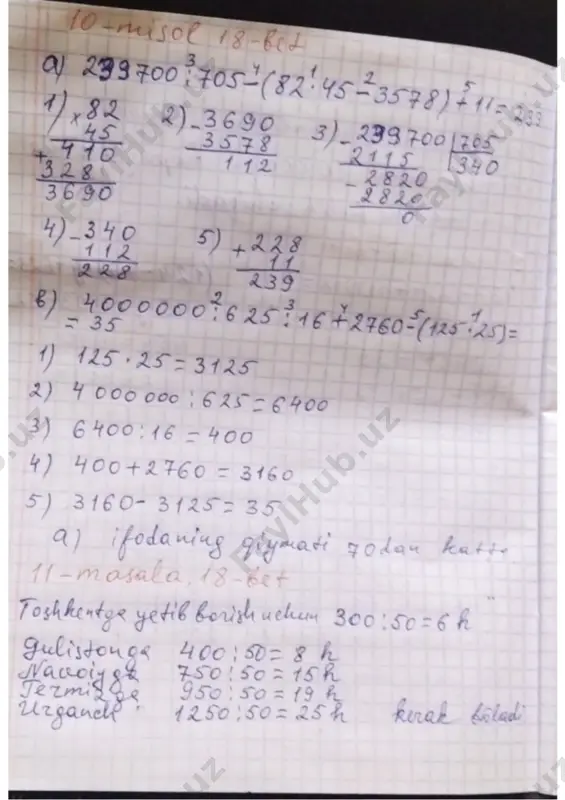 10-misol 18-bet
a) 239700:705-(82·45-3578)+11=239
1) ×82
45
+410
328
3690
2) -3690
3578
112
3) -239700 | 705
2115 | 340
-2820
2820
0
4) -340
112
228
5) +228
11
239
b) 4000000:625:16+2760-(125·25)=
= 35
1) 125·25=3125
2) 4000000:625=6400
3) 6400:16=400
4) 400+2760=3160
5) 3160-3125=35
a) ifodaning qiymati 70dan katta
11-masala. 18-bet
Toshkentga yetib borish uchun 300:50=6 h
Gulistonga 400:50=8 h
Navoiyga 750:50=15 h
Termizga 950:50=19 h
Urganch 1250:50=25 h kerak bo'ladi
FaylHub.uz